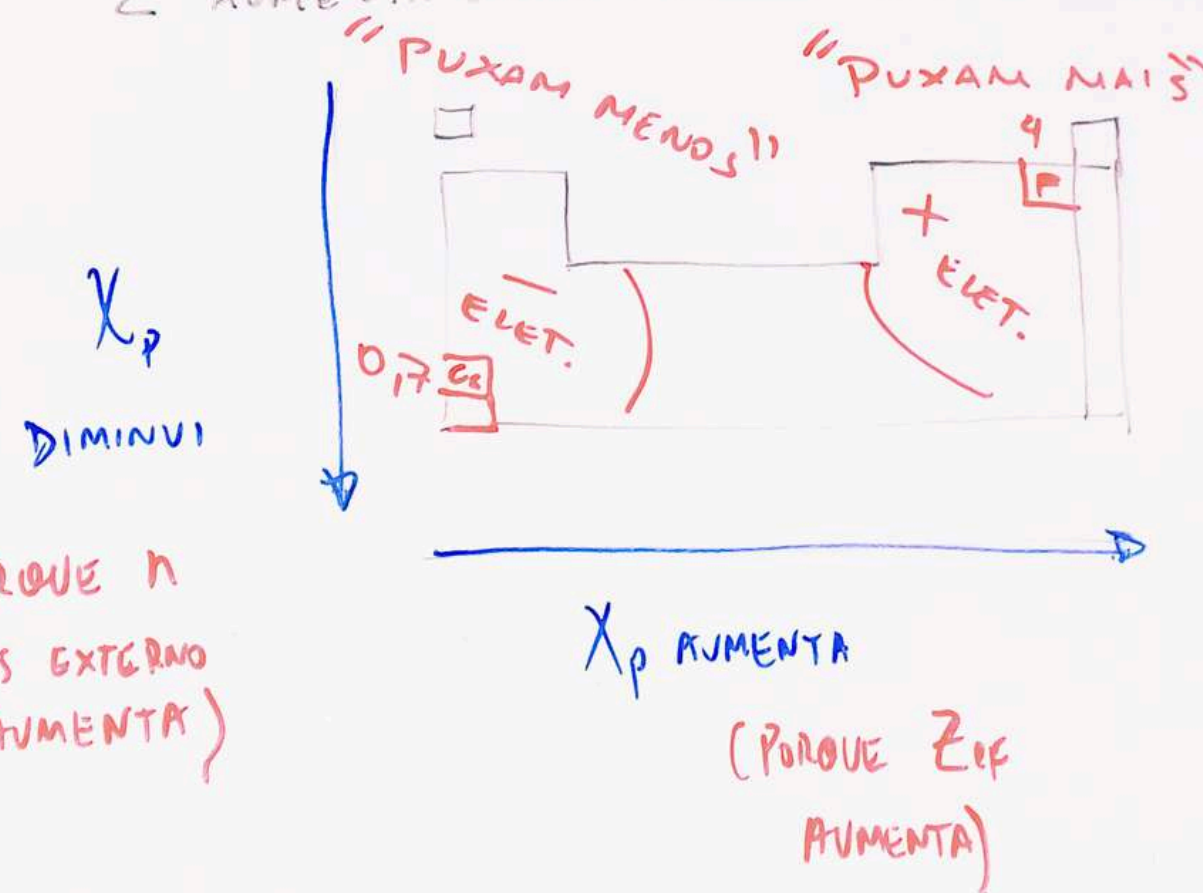 "PUXAM MENOS"
"PUXAM MAIS"
4
F
+
ELET.
-
ELET.
0,7
Cs
Xp
DIMINUI
n
EXTERNO
AUMENTA)
Xp AUMENTA
(PORQUE Zef
AUMENTA)